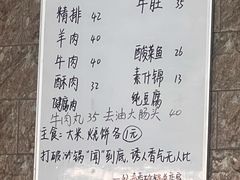 精排 42
牛肚 35
羊肉 40
牛肉 40
酸菜鱼 26
酥肉 32
素什锦 13
腱腐肉
炖豆腐
牛肉丸 35 去油大肠头 40
主食：大米 烧饼各1元
打破沙锅"闻"到底，诱人香气无人比